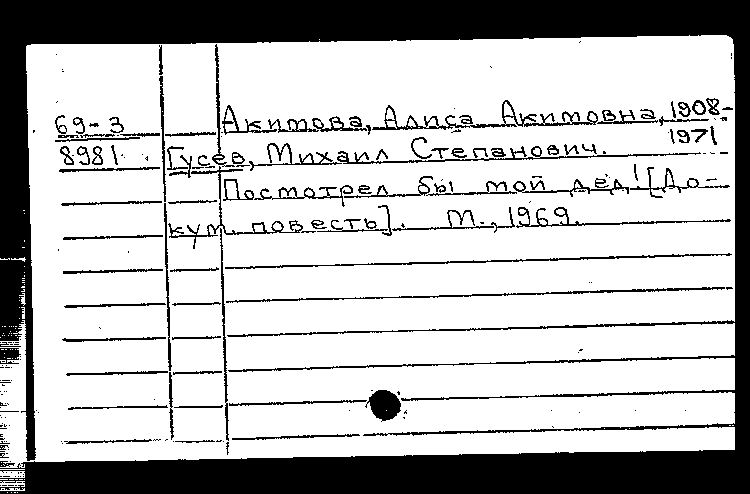 69-3 Акимова, Алиса Акимовна, 1908-
1971
8981 Гусев, Михаил Степанович.
Посмотрел бы мой дед! [До-
кум. повесть]. М., 1969.